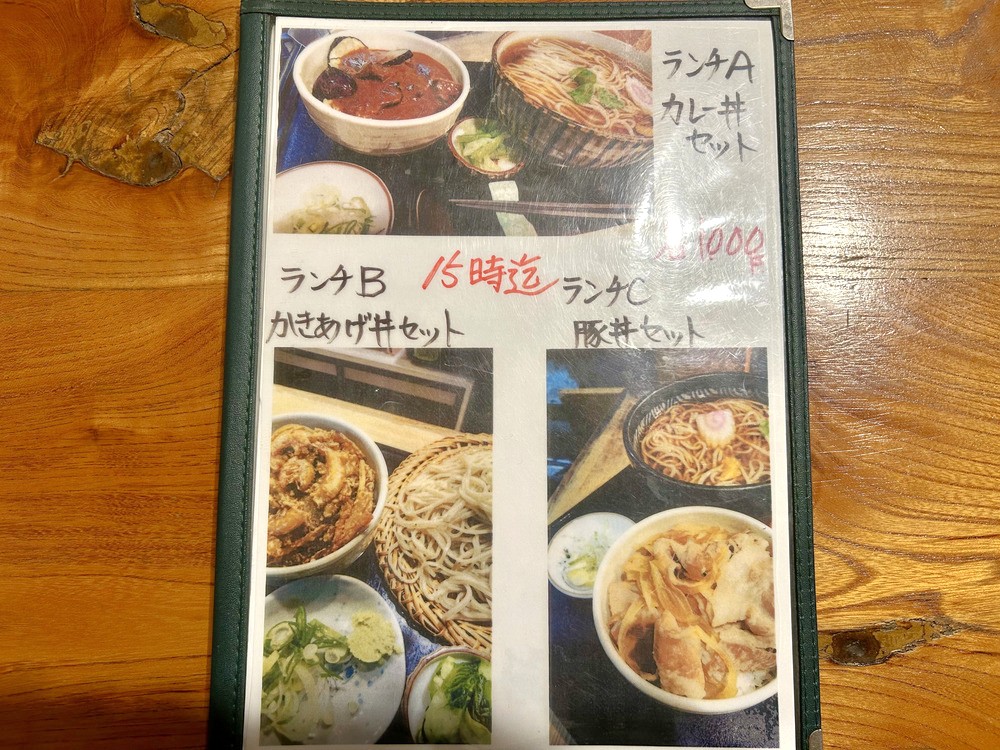 ランチA
カレー丼
セット
1000円
15時迄
ランチB
かきあげ丼セット
ランチC
豚丼セット